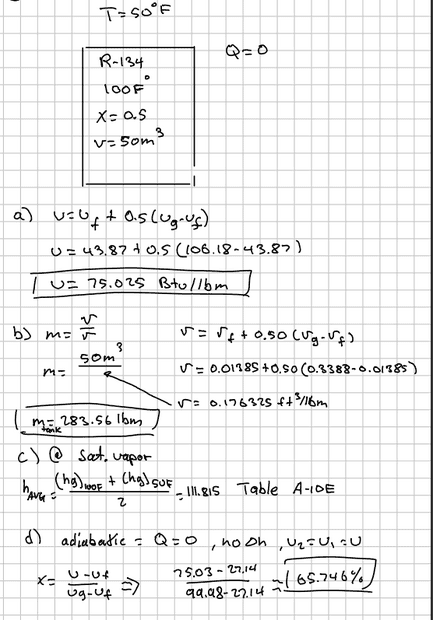 T=50°F
R-134
100F°
X=0.5
V=50m³
Q=0
a) U=Uf + 0.5(Ug-Uf)
U=43.87+0.5(106.18-43.87)
U= 75.025 Btu/lbm
b) m= V/v
v=vf+0.50(vg-vf)
m= 50m³/
v=0.01385+0.50(0.3388-0.01385)
v= 0.176325 ft³/lbm
m tank=283.56 lbm
c) @ Sat. vapor
hAVG= (hg)100F + (hg)50F / 2 =111.815 Table A-10E
d) adiabatic = Q=0, no Δh, U2=U1=U
X= U-Uf/Ug-Uf => 75.03-27.14/99.98-27.14 = 65.746%